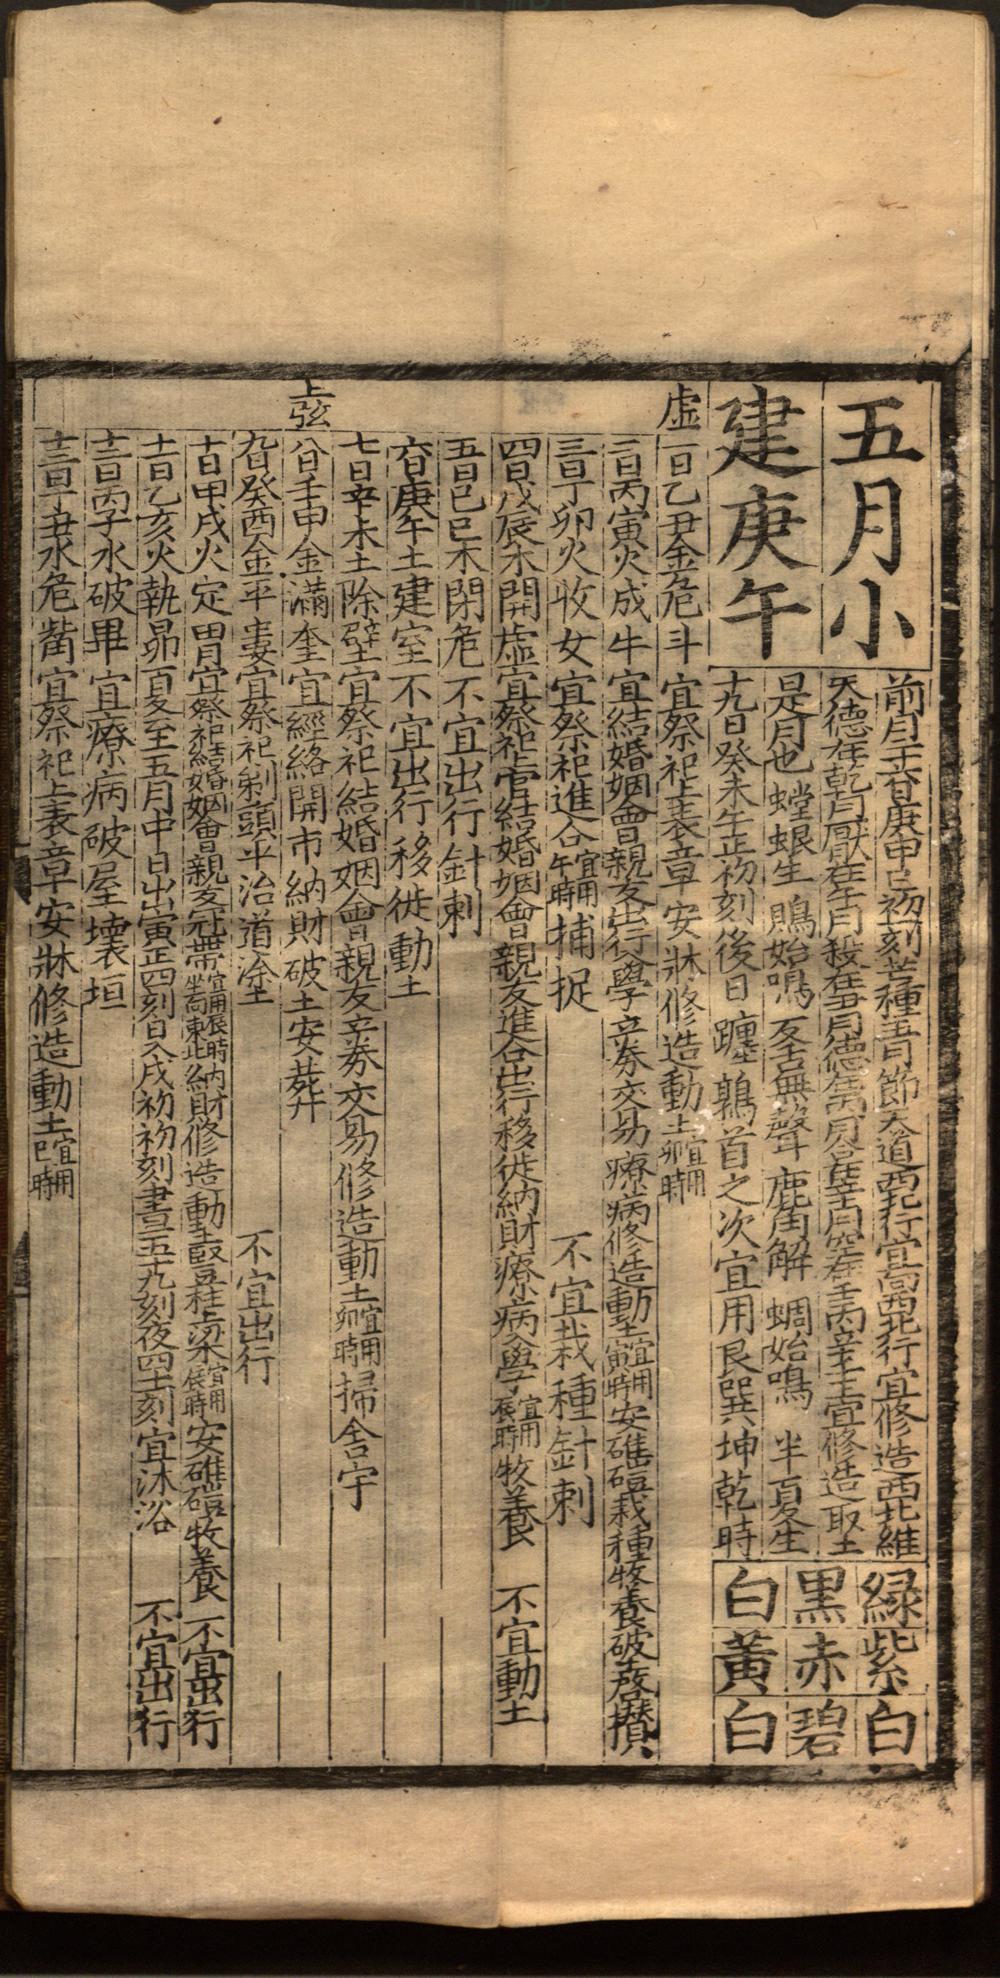 五月小
建庚午
前月十六日庚申巳初刻芒種五月節天道西北行宜向西北行宜修造西北維
天德在乾月厭在午月殺在丑月德在丙月合在辛月空在壬丙辛壬上宜修造取土
是月也 螳螂生 鵙始鳴 反舌無聲 鹿角解 蜩始鳴 半夏生
十九日癸未午正初刻後日躔鶉首之次宜用艮巽坤乾時
綠紫白
黑赤碧
白黃白
虛 一日乙丑金危斗 宜祭祀上表章安牀修造動土宜用卯時
二日丙寅火成牛 宜結婚姻會親友出行入學立券交易療病修造動土宜用寅時安碓磑栽種牧養破土啓攢
三日丁卯火收女 宜祭祀進人口宜用午時捕捉 不宜栽種針刺
四日戊辰木開虛 宜祭祀上官結婚姻會親友進人口出行移徙納財療病入學宜用辰時牧養 不宜動土
五日己巳木閉危 不宜出行針刺
六日庚午土建室 不宜出行移徙動土
七日辛未土除壁 宜祭祀結婚姻會親友立券交易修造動土宜用卯時掃舍宇
上弦 八日壬申金滿奎 宜經絡開市納財破土安葬
九日癸酉金平婁 宜祭祀剃頭平治道塗 不宜出行
十日甲戌火定胃 宜祭祀結婚姻會親友冠帶宜用辰時坐向東北納財修造動土豎柱上梁宜用辰時安碓磑牧養 不宜出行
十一日乙亥火執昴 夏至五月中日出寅正四刻日入戌初初刻晝五十九刻夜四十一刻 宜沐浴 不宜出行
十二日丙子水破畢 宜療病破屋壞垣
十三日丁丑水危觜 宜祭祀上表章安牀修造動土宜用巳時